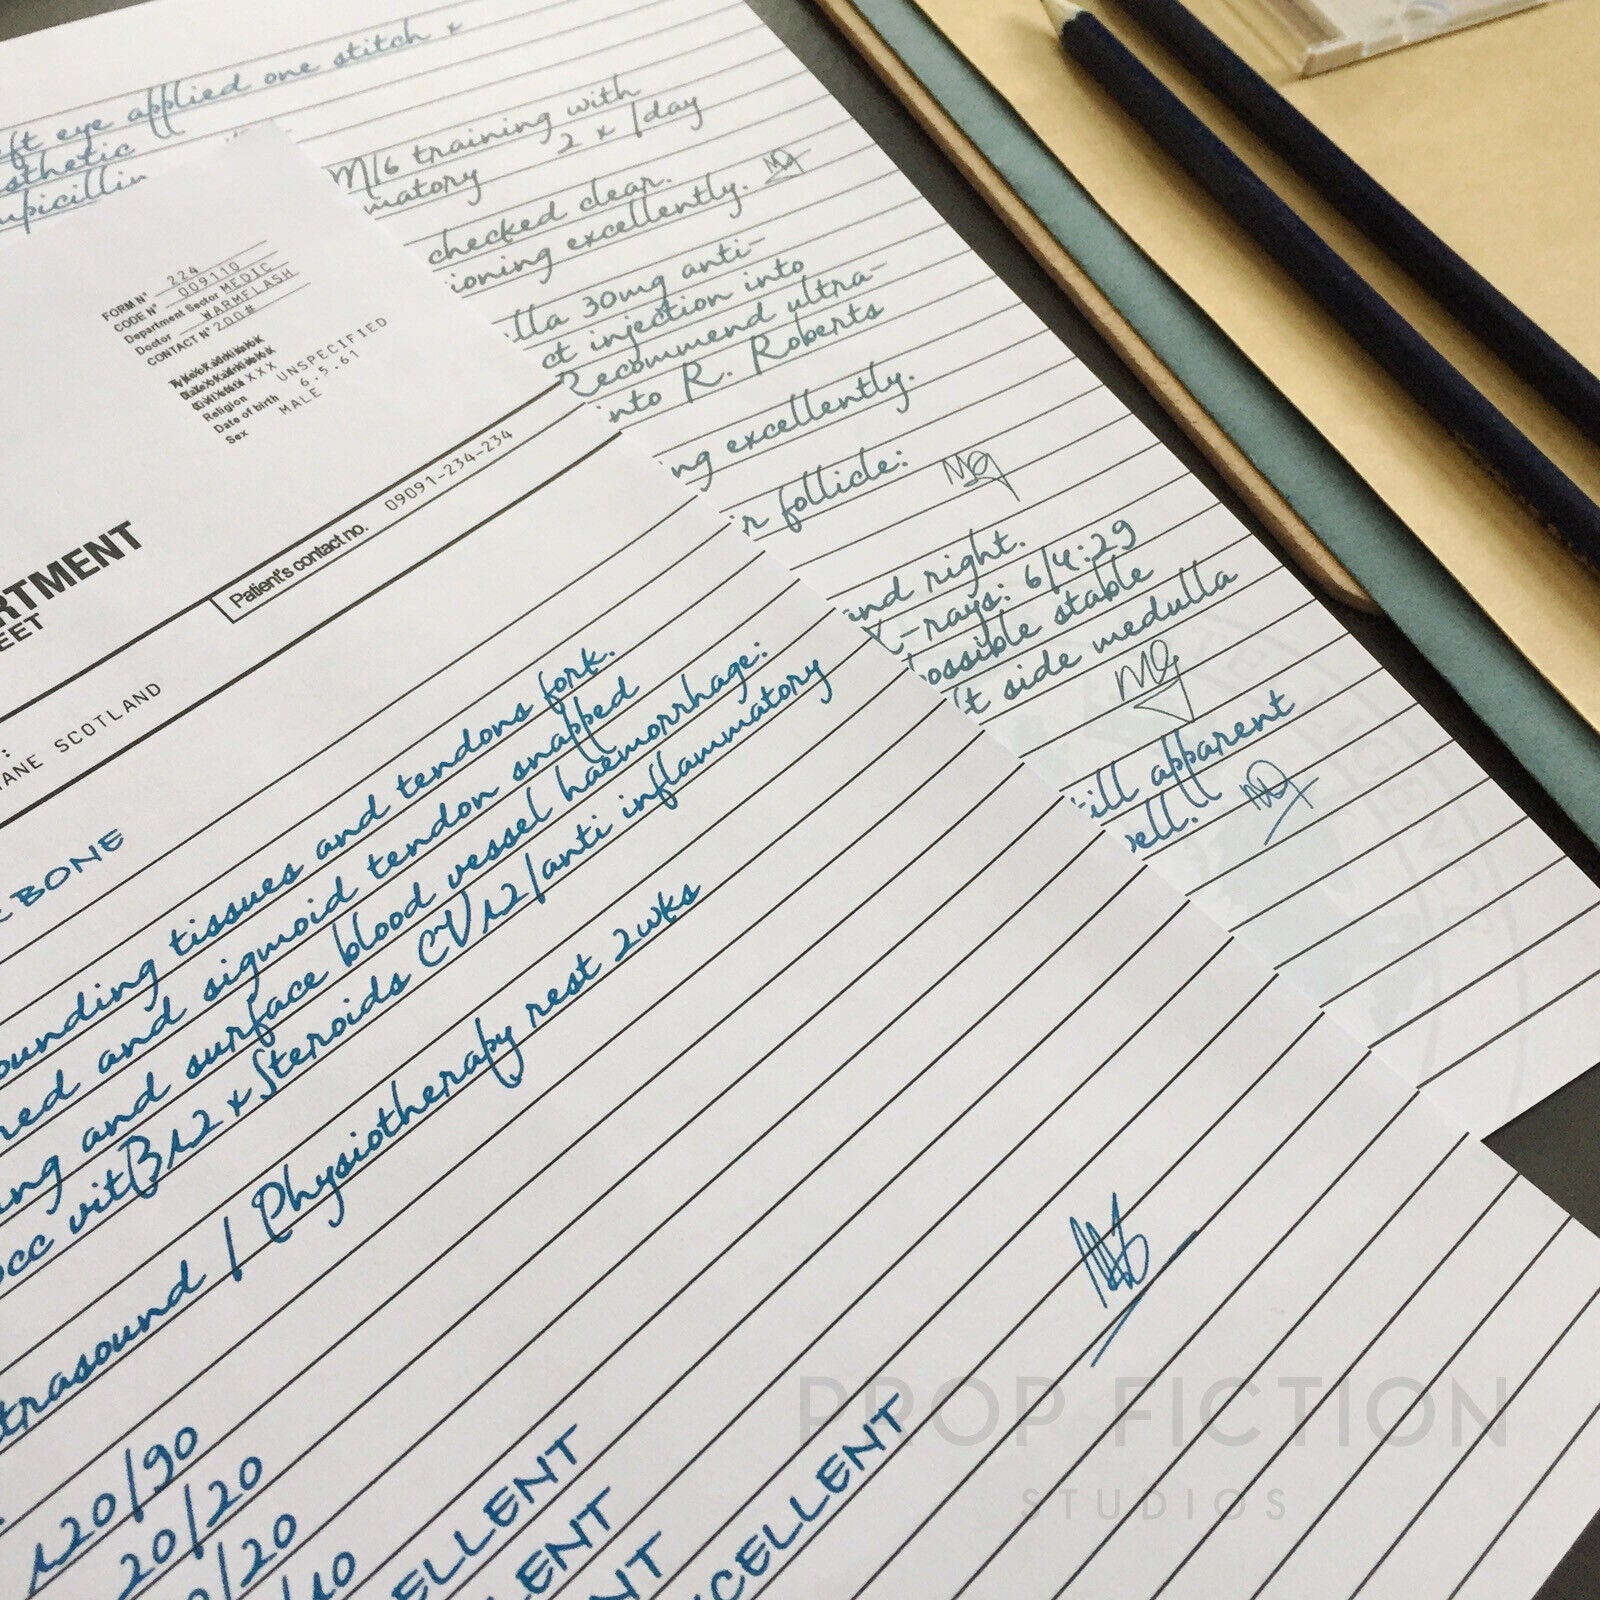 eye applied one stitch x
M16 training with
2 x /day
matory
checked clear.
ioning excellently. MG
lla 30mg anti-
ct injection into
Recommend ultra-
into R. Roberts
ng excellently.
r follicle: MG
ind right.
X-rays: 6/4:29
ossible stable
t side medulla
MG
ill apparent
ell. MG
FORM Nº 224
CODE Nº 009110
Department Sector MEDIC
Doctor WARMFLASH
CONTACT Nº 200#
XXX
Religion UNSPECIFIED
Date of birth 6.5.61
Sex MALE
RTMENT
EET
Patient's contact no. 09091-234-234
:
ANE SCOTLAND
BONE
ounding tissues and tendons fork.
red and sigmoid tendon snapped
ng and surface blood vessel haemorrhage:
occ vit B12 x Steroids CV12/anti inflammatory
trasound / Physiotherapy rest 2wks
120/90
20/20 ELLENT
/20 LENT
/10 NT
CELLENT
PROP FICTION
STUDIOS